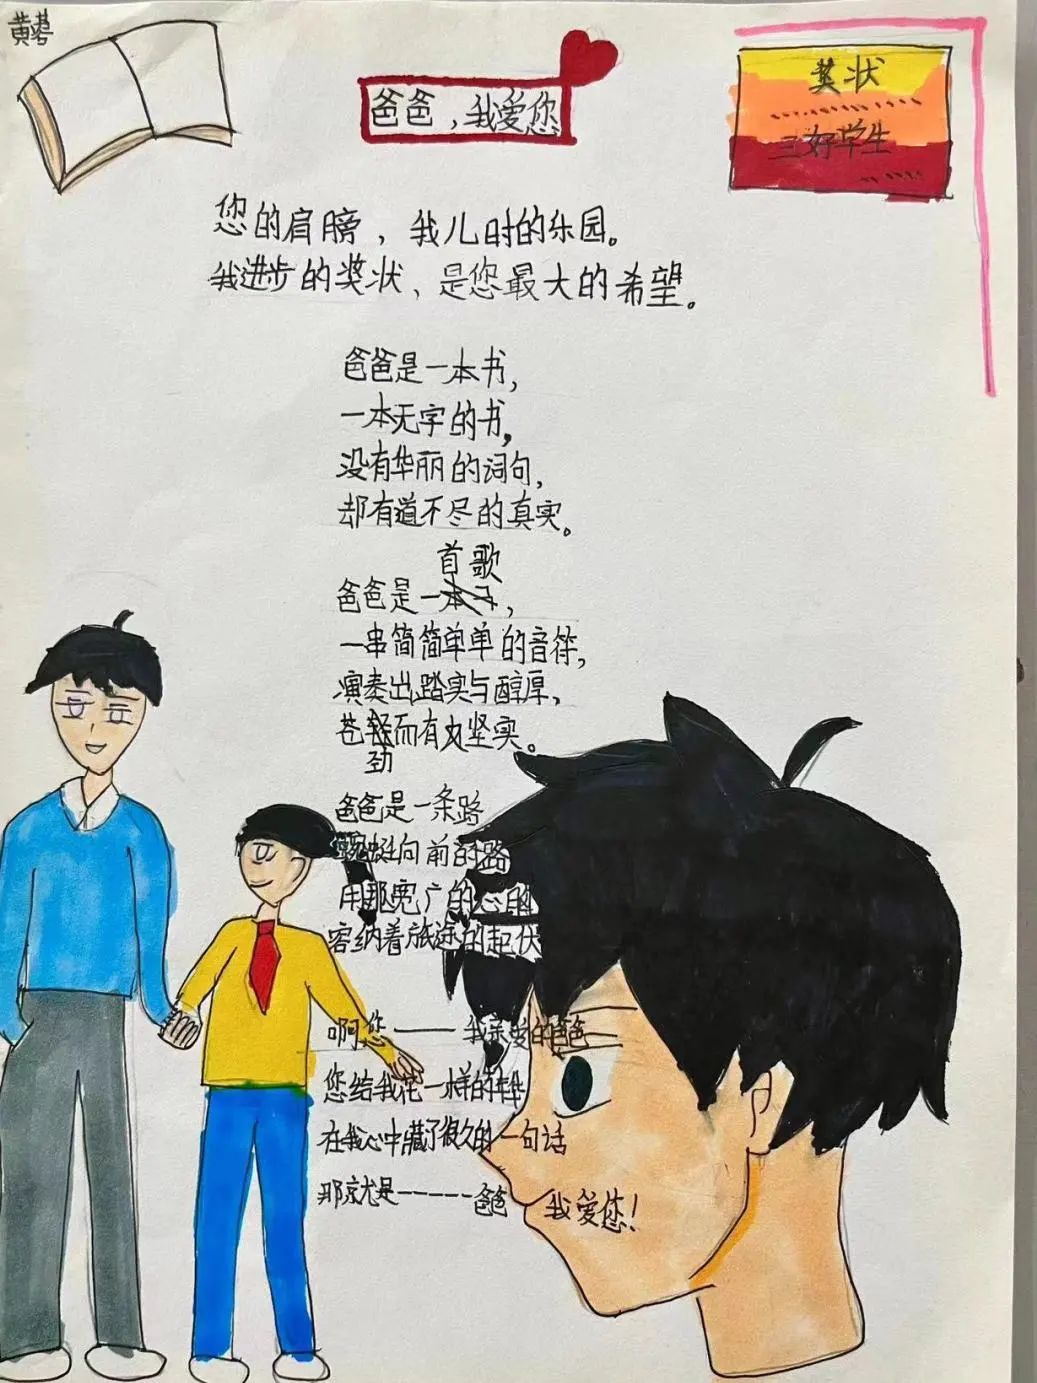 黄碧
爸爸，我爱您
奖状
三好学生
您的肩膀，我儿时的乐园。
我进步的奖状、是您最大的希望。
爸爸是一本书，
一本无字的书，
没有华丽的词句，
却有道不尽的真实。
首歌
爸爸是一本书，
一串简简单单的音符，
演奏出踏实与醇厚，
苍而有力坚实。
劲
爸爸是一条路
蜿蜒向前的路
用那宽广的心胸
容纳着旅途的起伏
啊您——我亲爱的爸爸
您给我花一样的年华
在我心中藏了很久的一句话
那就是------爸爸 我爱您！